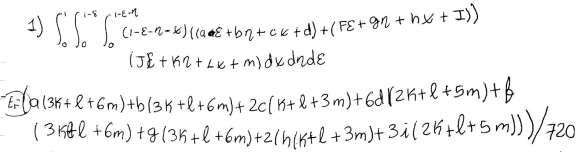 1) ∫₀¹ ∫₀^{1-ε} ∫₀^{1-ε-η} (1-ε-η-x)((aε+bη+cx+d)+(Fε+gη+hx+I))
(Jε+Kη+Lx+m)dxdηdε
(a(3K+l+6m)+b(3K+l+6m)+2c(K+l+3m)+6d(2K+l+5m)+f
(3K+l+6m)+g(3K+l+6m)+2(h(K+l+3m)+3i(2K+l+5m)))/720